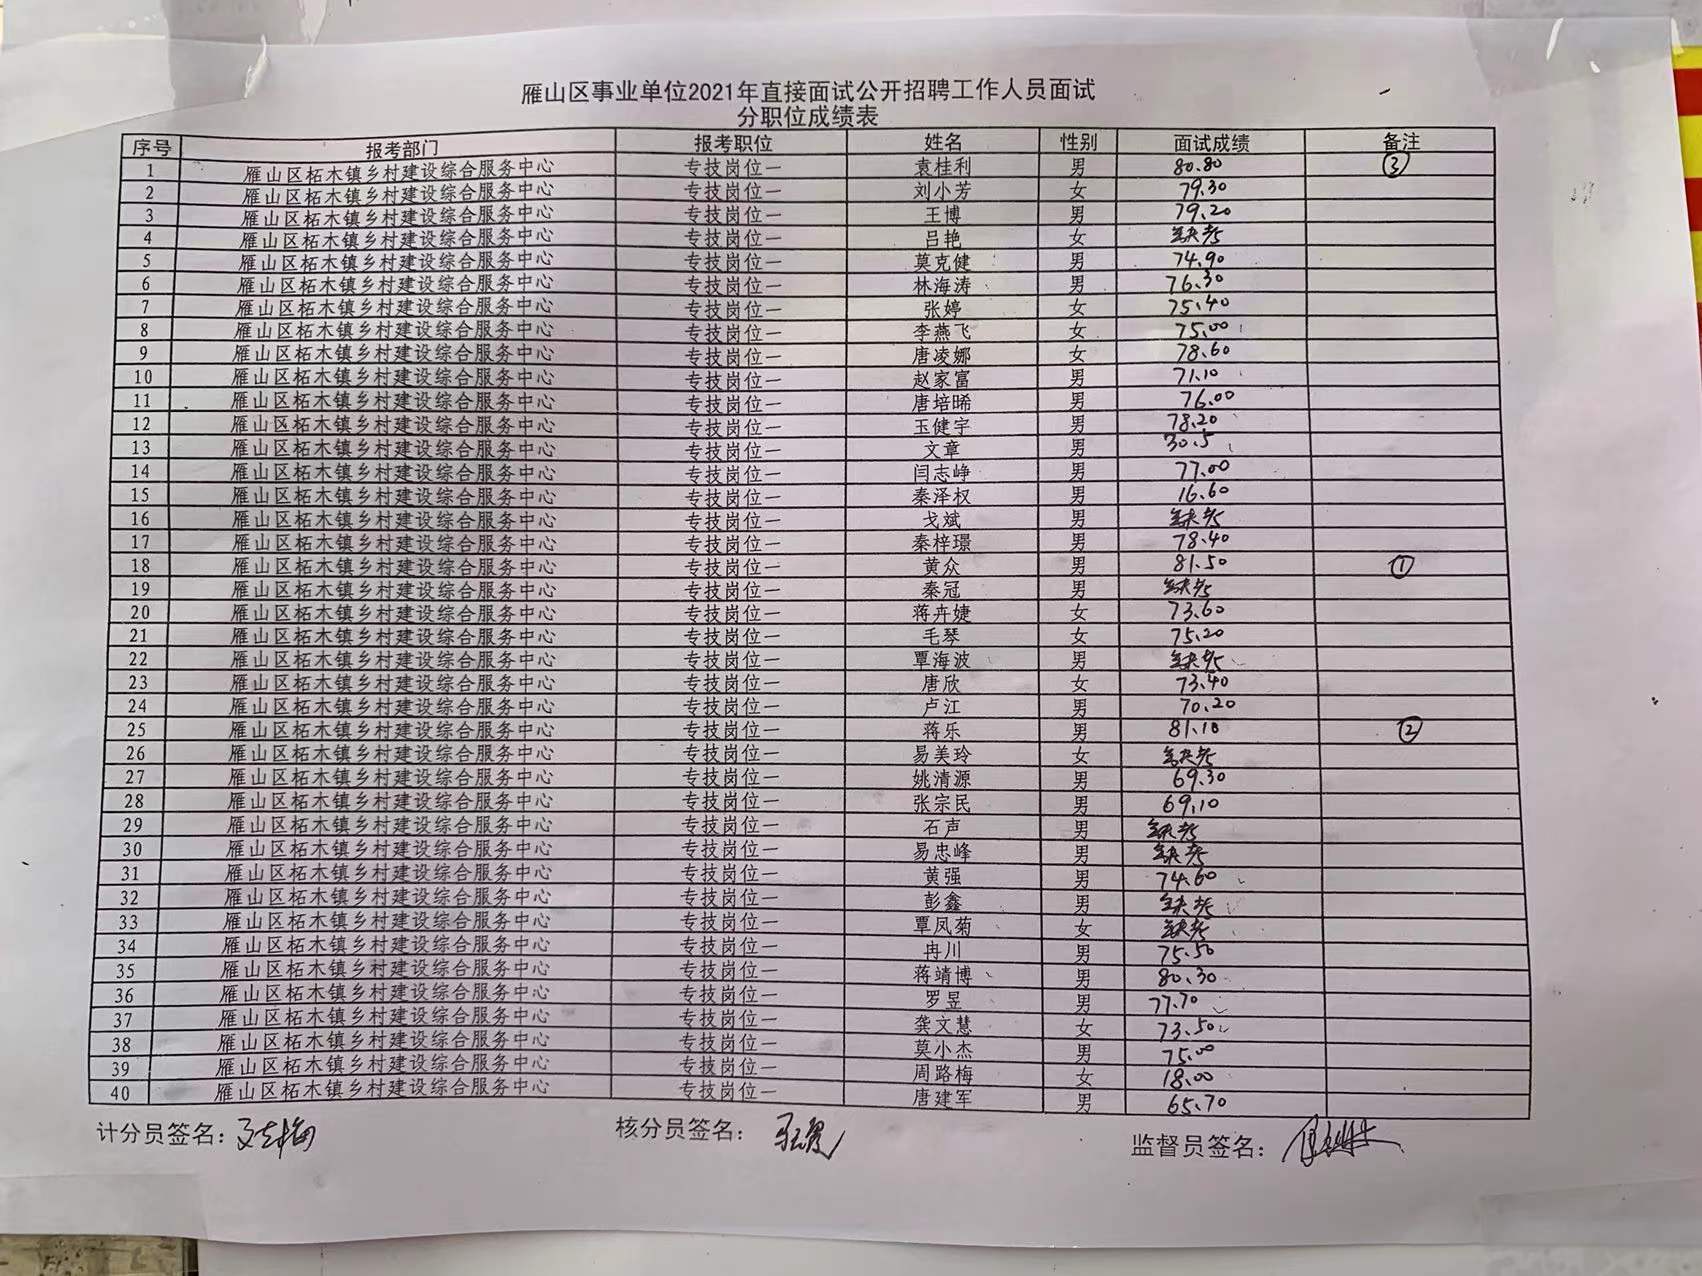 雁山区事业单位2021年直接面试公开招聘工作人员面试
分职位成绩表
序号 报考部门 报考职位 姓名 性别 面试成绩 备注
1 雁山区柘木镇乡村建设综合服务中心 专技岗位一 袁桂利 男 80.80 ③
2 雁山区柘木镇乡村建设综合服务中心 专技岗位一 刘小芳 女 79.30
3 雁山区柘木镇乡村建设综合服务中心 专技岗位一 王博 男 79.20
4 雁山区柘木镇乡村建设综合服务中心 专技岗位一 吕艳 女 缺考
5 雁山区柘木镇乡村建设综合服务中心 专技岗位一 莫克健 男 74.90
6 雁山区柘木镇乡村建设综合服务中心 专技岗位一 林海涛 男 76.30
7 雁山区柘木镇乡村建设综合服务中心 专技岗位一 张婷 女 75.40
8 雁山区柘木镇乡村建设综合服务中心 专技岗位一 李燕飞 女 75.00
9 雁山区柘木镇乡村建设综合服务中心 专技岗位一 唐凌娜 女 78.60
10 雁山区柘木镇乡村建设综合服务中心 专技岗位一 赵家富 男 71.10
11 雁山区柘木镇乡村建设综合服务中心 专技岗位一 唐培晞 男 76.00
12 雁山区柘木镇乡村建设综合服务中心 专技岗位一 玉健宇 男 78.20
13 雁山区柘木镇乡村建设综合服务中心 专技岗位一 文章 男 30.5
14 雁山区柘木镇乡村建设综合服务中心 专技岗位一 闫志峥 男 77.00
15 雁山区柘木镇乡村建设综合服务中心 专技岗位一 秦泽权 男 16.60
16 雁山区柘木镇乡村建设综合服务中心 专技岗位一 戈斌 男 缺考
17 雁山区柘木镇乡村建设综合服务中心 专技岗位一 秦梓璟 男 78.40
18 雁山区柘木镇乡村建设综合服务中心 专技岗位一 黄众 男 81.50 ①
19 雁山区柘木镇乡村建设综合服务中心 专技岗位一 秦冠 男 缺考
20 雁山区柘木镇乡村建设综合服务中心 专技岗位一 蒋卉婕 女 73.60
21 雁山区柘木镇乡村建设综合服务中心 专技岗位一 毛琴 女 75.20
22 雁山区柘木镇乡村建设综合服务中心 专技岗位一 覃海波 男 缺考
23 雁山区柘木镇乡村建设综合服务中心 专技岗位一 唐欣 女 73.40
24 雁山区柘木镇乡村建设综合服务中心 专技岗位一 卢江 男 70.20
25 雁山区柘木镇乡村建设综合服务中心 专技岗位一 蒋乐 男 81.10 ②
26 雁山区柘木镇乡村建设综合服务中心 专技岗位一 易美玲 女 缺考
27 雁山区柘木镇乡村建设综合服务中心 专技岗位一 姚清源 男 69.30
28 雁山区柘木镇乡村建设综合服务中心 专技岗位一 张宗民 男 69.10
29 雁山区柘木镇乡村建设综合服务中心 专技岗位一 石声 男 缺考
30 雁山区柘木镇乡村建设综合服务中心 专技岗位一 易忠峰 男 缺考
31 雁山区柘木镇乡村建设综合服务中心 专技岗位一 黄强 男 74.60
32 雁山区柘木镇乡村建设综合服务中心 专技岗位一 彭鑫 男 缺考
33 雁山区柘木镇乡村建设综合服务中心 专技岗位一 覃凤菊 女 缺考
34 雁山区柘木镇乡村建设综合服务中心 专技岗位一 冉川 男 75.50
35 雁山区柘木镇乡村建设综合服务中心 专技岗位一 蒋靖博 男 80.30
36 雁山区柘木镇乡村建设综合服务中心 专技岗位一 罗昱 男 77.70
37 雁山区柘木镇乡村建设综合服务中心 专技岗位一 龚文慧 女 73.50
38 雁山区柘木镇乡村建设综合服务中心 专技岗位一 莫小杰 男 75.00
39 雁山区柘木镇乡村建设综合服务中心 专技岗位一 周路梅 女 18.00
40 雁山区柘木镇乡村建设综合服务中心 专技岗位一 唐建军 男 65.70
计分员签名： 核分员签名： 监督员签名：